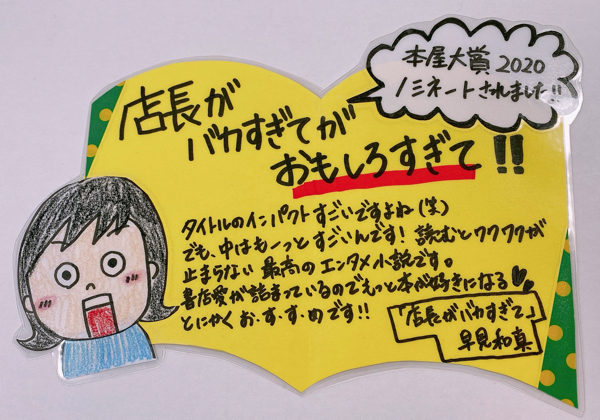 本屋大賞2020
ノミネートされました!!
店長が
バカすぎてが
おもしろすぎて!!
タイトルのインパクトすごいですよね(笑)
でも、中はもーっとすごいんです!読むとワクワクが
止まらない最高のエンタメ小説です。
書店愛が詰まっているのでえっと本が好きになる♥♥
とにかくお・す・す・めです!!
「店長がバカすぎて」
早見和真